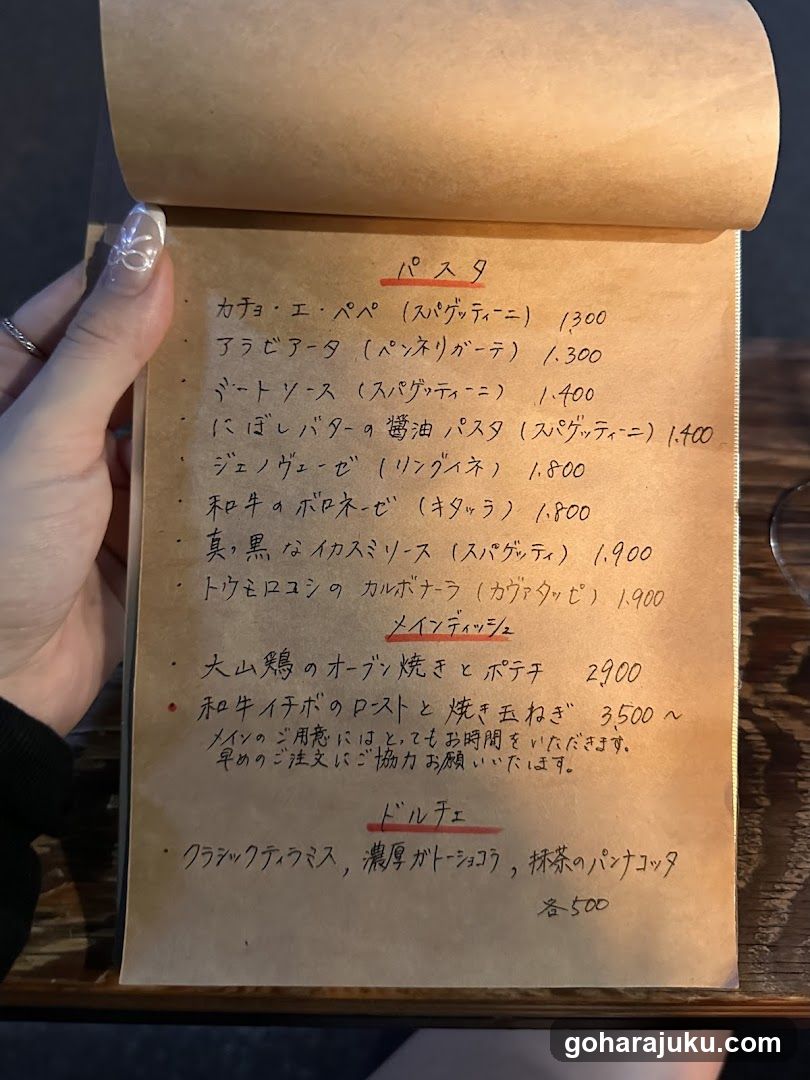 パスタ
・カチョ・エ・ペペ (スパゲッティーニ) 1,300
・アラビアータ (ペンネリガーテ) 1.300
・ミートソース (スパゲッティーニ) 1.400
・にぼしバターの醤油パスタ (スパゲッティーニ) 1.400
・ジェノヴェーゼ (リングイネ) 1.800
・和牛のボロネーゼ (キタッラ) 1.800
・真っ黒なイカスミソース (スパゲッティ) 1.900
・トウモロコシのカルボナーラ (カヴァタッピ) 1.900
メインディッシュ
・大山鶏のオーブン焼きとポテチ 2,900
・和牛イチボのローストと焼き玉ねぎ 3,500〜
メインのご用意にはとってもお時間をいただきます。
早めのご注文にご協力お願いいたします。
ドルチェ
・クラシックティラミス, 濃厚ガトーショコラ, 抹茶のパンナコッタ
各500
goharajuku.com